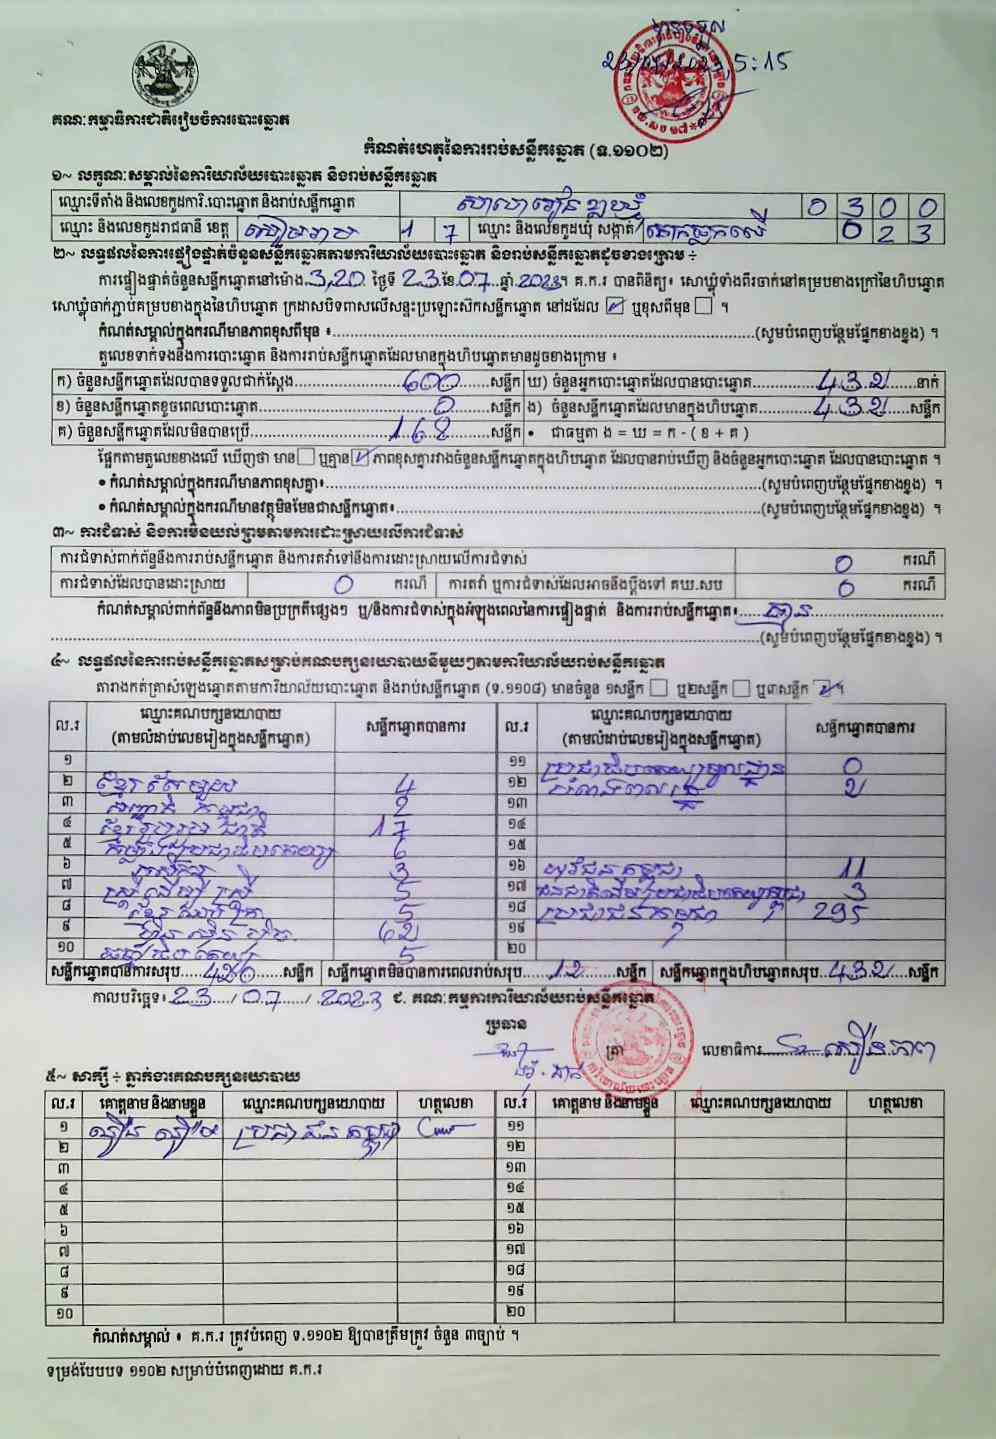 5:15
គណៈកម្មាធិការជាតិរៀបចំការបោះឆ្នោត
កំណត់ហេតុនៃការរាប់សន្លឹកឆ្នោត (ទ.១១០២)
១~ លក្ខណៈសម្គាល់នៃការិយាល័យបោះឆ្នោត និងរាប់សន្លឹកឆ្នោត
ឈ្មោះទីតាំង និងលេខកូដការិ.បោះឆ្នោត និងរាប់សន្លឹកឆ្នោត 0 3 0 0
ឈ្មោះ និងលេខកូដរាជធានី ខេត្ត សៀមរាប 1 7 ឈ្មោះ និងលេខកូដឃុំ សង្កាត់ 0 2 3
២~ លទ្ធផលនៃការផ្ទៀងផ្ទាត់ចំនួនសន្លឹកឆ្នោតតាមការិយាល័យបោះឆ្នោត និងរាប់សន្លឹកឆ្នោតដូចខាងក្រោម ÷
ការផ្ទៀងផ្ទាត់ចំនួនសន្លឹកឆ្នោតនៅម៉ោង 3,20 ថ្ងៃទី 23 ខែ 07 ឆ្នាំ 2023។ គ.ក.រ បានពិនិត្យ៖ សោឃ្លុំទាំងពីរចាក់នៅគម្របខាងក្រៅនៃហិបឆ្នោត
សោឃ្លុំចាក់ភ្ជាប់គម្របខាងក្នុងនៃហិបឆ្នោត ក្រដាសបិទពាសលើសន្ទះប្រឡោះស៊កសន្លឹកឆ្នោត នៅដដែល ✓ ឬខុសពីមុន ។
កំណត់សម្គាល់ក្នុងករណីមានភាពខុសពីមុន ៖ (សូមបំពេញបន្ថែមផ្នែកខាងខ្នង) ។
តួលេខទាក់ទងនឹងការបោះឆ្នោត និងការរាប់សន្លឹកឆ្នោតដែលមានក្នុងហិបឆ្នោតមានដូចខាងក្រោម ៖
ក) ចំនួនសន្លឹកឆ្នោតដែលបានទទួលជាក់ស្តែង 600 សន្លឹក ឃ) ចំនួនអ្នកបោះឆ្នោតដែលបានបោះឆ្នោត 432 នាក់
ខ) ចំនួនសន្លឹកឆ្នោតខូចពេលបោះឆ្នោត 0 សន្លឹក ង) ចំនួនសន្លឹកឆ្នោតដែលមានក្នុងហិបឆ្នោត 432 សន្លឹក
គ) ចំនួនសន្លឹកឆ្នោតដែលមិនបានប្រើ 168 សន្លឹក • ជាធម្មតា ង = ឃ = ក - ( ខ + គ )
ផ្អែកតាមតួលេខខាងលើ ឃើញថា មាន ឬគ្មាន ✓ ភាពខុសគ្នារវាងចំនួនសន្លឹកឆ្នោតក្នុងហិបឆ្នោត ដែលបានរាប់ឃើញ និងចំនួនអ្នកបោះឆ្នោត ដែលបានបោះឆ្នោត ។
• កំណត់សម្គាល់ក្នុងករណីមានភាពខុសគ្នា៖ (សូមបំពេញបន្ថែមផ្នែកខាងខ្នង) ។
• កំណត់សម្គាល់ក្នុងករណីមានវត្ថុមិនមែនជាសន្លឹកឆ្នោត៖ (សូមបំពេញបន្ថែមផ្នែកខាងខ្នង) ។
៣~ ការជំទាស់ និងការមិនយល់ព្រមតាមការដោះស្រាយលើការជំទាស់
ការជំទាស់ពាក់ព័ន្ធនឹងការរាប់សន្លឹកឆ្នោត និងការតវ៉ាទៅនឹងការដោះស្រាយលើការជំទាស់ 0 ករណី
ការជំទាស់ដែលបានដោះស្រាយ 0 ករណី ការតវ៉ា ឬការជំទាស់ដែលអាចនឹងប្តឹងទៅ គឃ.សប 0 ករណី
កំណត់សម្គាល់ពាក់ព័ន្ធនឹងភាពមិនប្រក្រតីផ្សេងៗ ឬ/និងការជំទាស់ក្នុងអំឡុងពេលនៃការផ្ទៀងផ្ទាត់ និងការរាប់សន្លឹកឆ្នោត៖ គ្មាន
(សូមបំពេញបន្ថែមផ្នែកខាងខ្នង) ។
៤~ លទ្ធផលនៃការរាប់សន្លឹកឆ្នោតសម្រាប់គណបក្សនយោបាយនីមួយៗតាមការិយាល័យរាប់សន្លឹកឆ្នោត
តារាងកត់ត្រាសំឡេងឆ្នោតតាមការិយាល័យបោះឆ្នោត និងរាប់សន្លឹកឆ្នោត (ទ.១១០៨) មានចំនួន ១សន្លឹក ឬ២សន្លឹក ឬ៣សន្លឹក ✓ ។
ល.រ ឈ្មោះគណបក្សនយោបាយ (តាមលំដាប់លេខរៀងក្នុងសន្លឹកឆ្នោត) សន្លឹកឆ្នោតបានការ ល.រ ឈ្មោះគណបក្សនយោបាយ (តាមលំដាប់លេខរៀងក្នុងសន្លឹកឆ្នោត) សន្លឹកឆ្នោតបានការ
១ ១១ ប្រជាធិបតេយ្យមូលដ្ឋាន 0
២ ខ្មែររួបរួម 4 ១២ 2
៣ សញ្ជាតិកម្ពុជា 2 ១៣
៤ ខ្មែររួបរួមជាតិ 17 ១៤
៥ កម្លាំងប្រជាធិបតេយ្យ 6 ១៥
៦ 3 ១៦ យុវជនកម្ពុជា 11
៧ ស្ត្រីដើម្បីស្ត្រី 5 ១៧ ជនជាតិដើមប្រជាធិបតេយ្យកម្ពុជា 3
៨ 5 ១៨ ប្រជាជនកម្ពុជា 295
៩ ហ៊្វុនស៊ិនប៉ិច 62 ១៩
១០ 5 ២០
សន្លឹកឆ្នោតបានការសរុប 420 សន្លឹក សន្លឹកឆ្នោតមិនបានការពេលរាប់សរុប 12 សន្លឹក សន្លឹកឆ្នោតក្នុងហិបឆ្នោតសរុប 432 សន្លឹក
កាលបរិច្ឆេទ៖ 23 / 07 / 2023 ជ. គណៈកម្មការការិយាល័យរាប់សន្លឹកឆ្នោត
ប្រធាន
ត្រា លេខាធិការ
៥~ សាក្សី ÷ ភ្នាក់ងារគណបក្សនយោបាយ
ល.រ គោត្តនាម និងនាមខ្លួន ឈ្មោះគណបក្សនយោបាយ ហត្ថលេខា ល.រ គោត្តនាម និងនាមខ្លួន ឈ្មោះគណបក្សនយោបាយ ហត្ថលេខា
១ ប្រជាជនកម្ពុជា ១១
២ ១២
៣ ១៣
៤ ១៤
៥ ១៥
៦ ១៦
៧ ១៧
៨ ១៨
៩ ១៩
១០ ២០
កំណត់សម្គាល់ ៖ គ.ក.រ ត្រូវបំពេញ ទ.១១០២ ឱ្យបានត្រឹមត្រូវ ចំនួន ៣ច្បាប់ ។
ទម្រង់បែបបទ ១១០២ សម្រាប់បំពេញដោយ គ.ក.រ